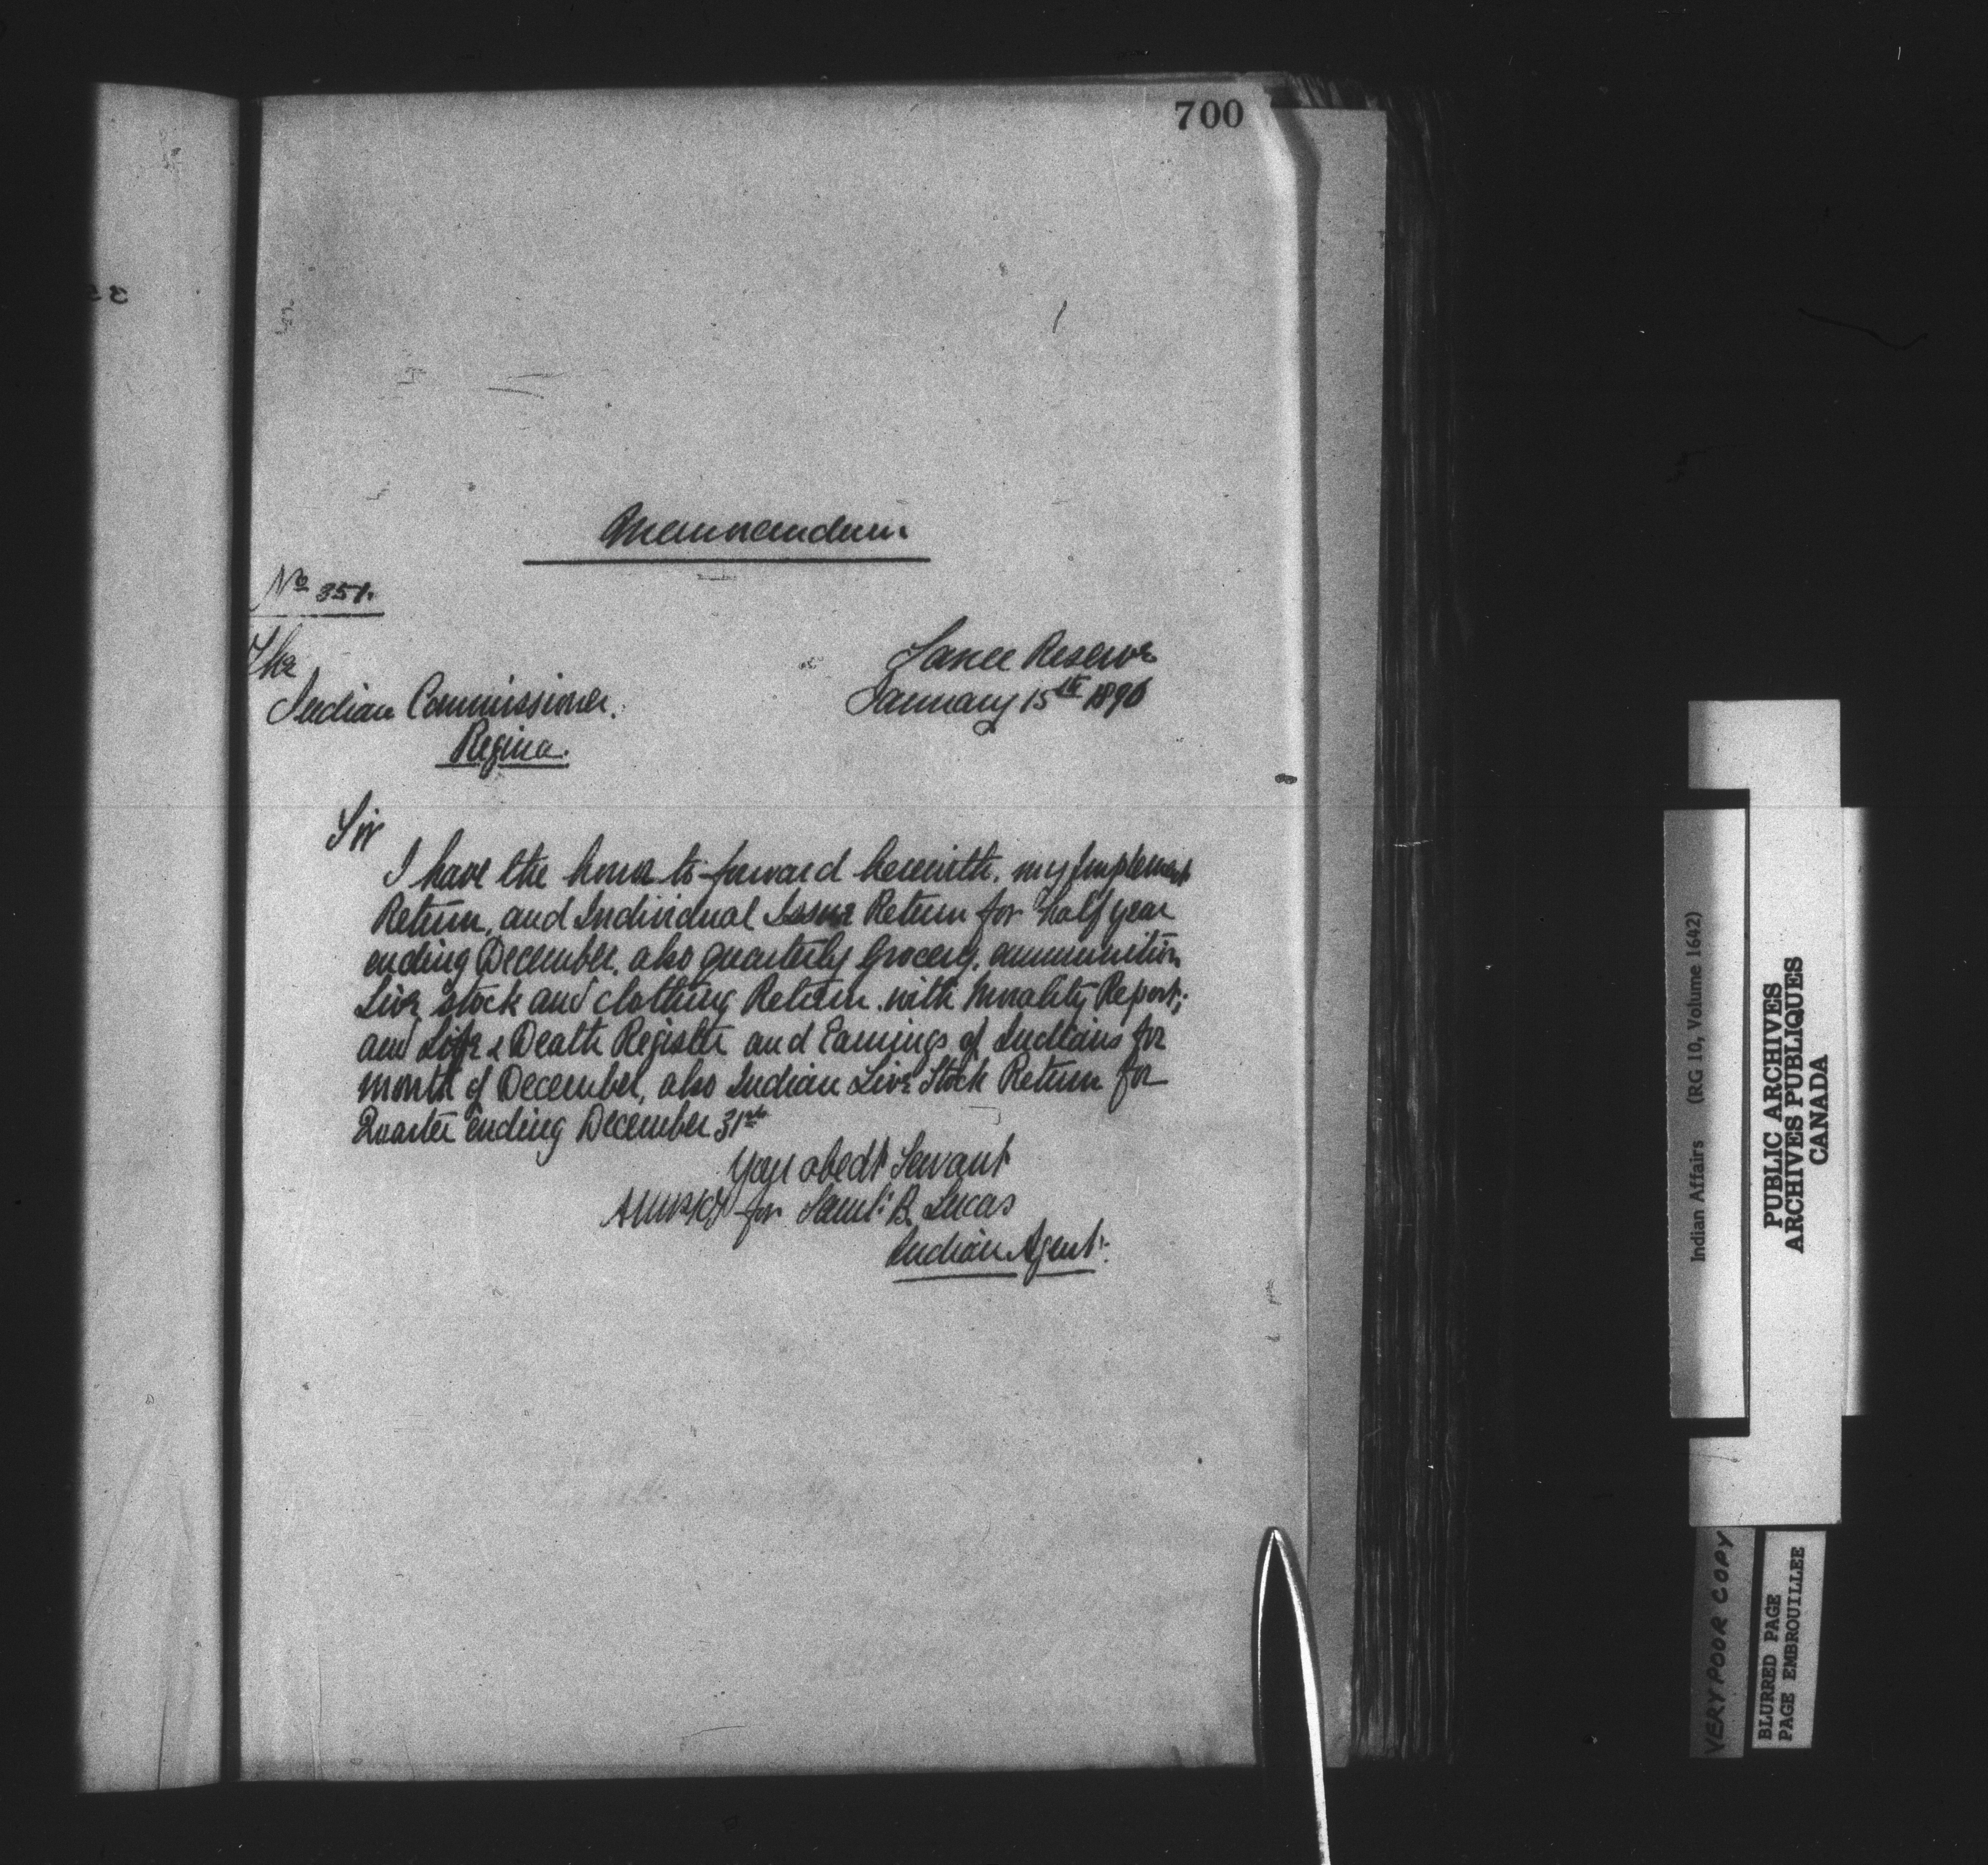 700
Memorandum
No 351.
The
Indian Commissioner.
Regina.
Sarcee Reserve
January 15th 1896
Sir
I have the honor to forward herewith, my Implement
Return, and Individual Issue Return for half year
ending December, also quarterly Grocery, ammunition
Live stock and clothing Return with Morality Report;
and Life & Death Register and Earnings of Indians for
month of December, also Indian Live Stock Return for
Quarter ending December 31st
Your obedt Servant
for Saml. B. Lucas
Indian Agent.
Indian Affairs (RG 10, Volume 1642)
PUBLIC ARCHIVES
ARCHIVES PUBLIQUES
CANADA
VERY POOR COPY
BLURRED PAGE
PAGE EMBROUILLEE